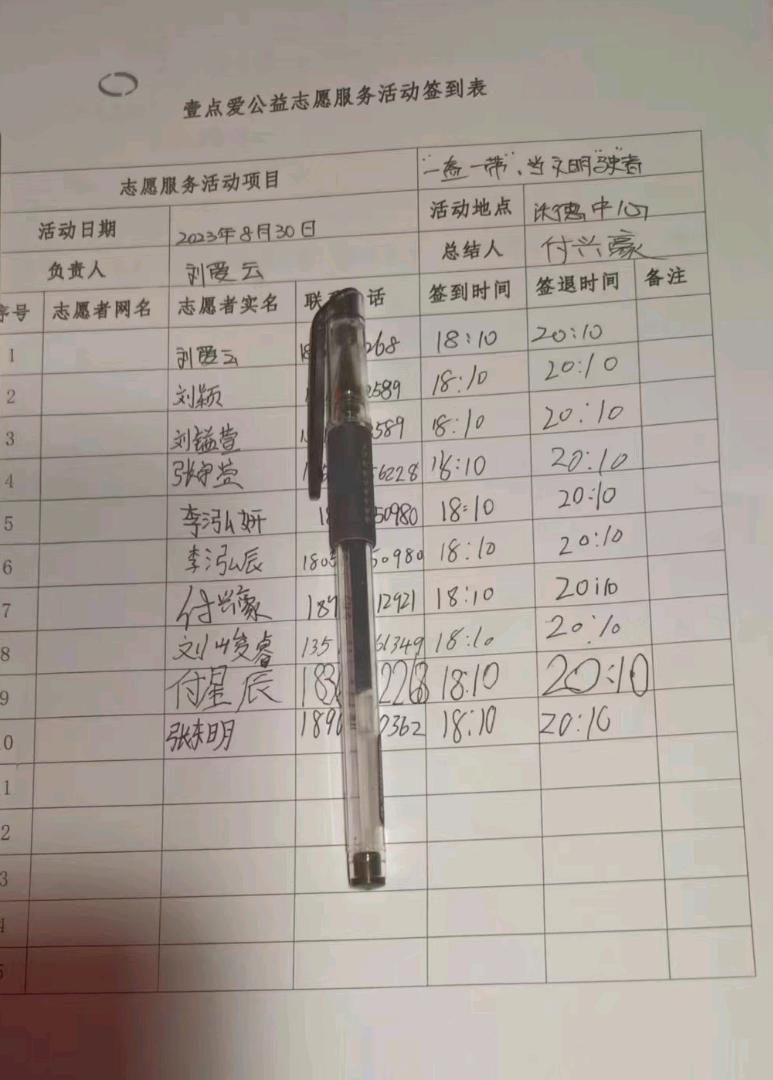 壹点爱公益志愿服务活动签到表
志愿服务活动项目 "一盔一带",当文明"驶"者
活动日期 2023年8月30日 活动地点 沃德中心
负责人 刘霞云 总结人 付兴豪
序号 志愿者网名 志愿者实名 联 话 签到时间 签退时间 备注
1 刘霞云 268 18:10 20:10
2 刘颖 2589 18:10 20:10
3 589 18:10 20:10
4 56228 18:10 20:10
5 李泓妍 18 50980 18:10 20:10
6 李泓辰 1805 50980 18:10 20:10
7 付兴豪 189 12921 18:10 20:10
8 刘峻睿 135 61349 18:10 20:10
9 付星辰 183 2268 18:10 20:10
0 张未明 1890 0362 18:10 20:10
1
2
3
4
5